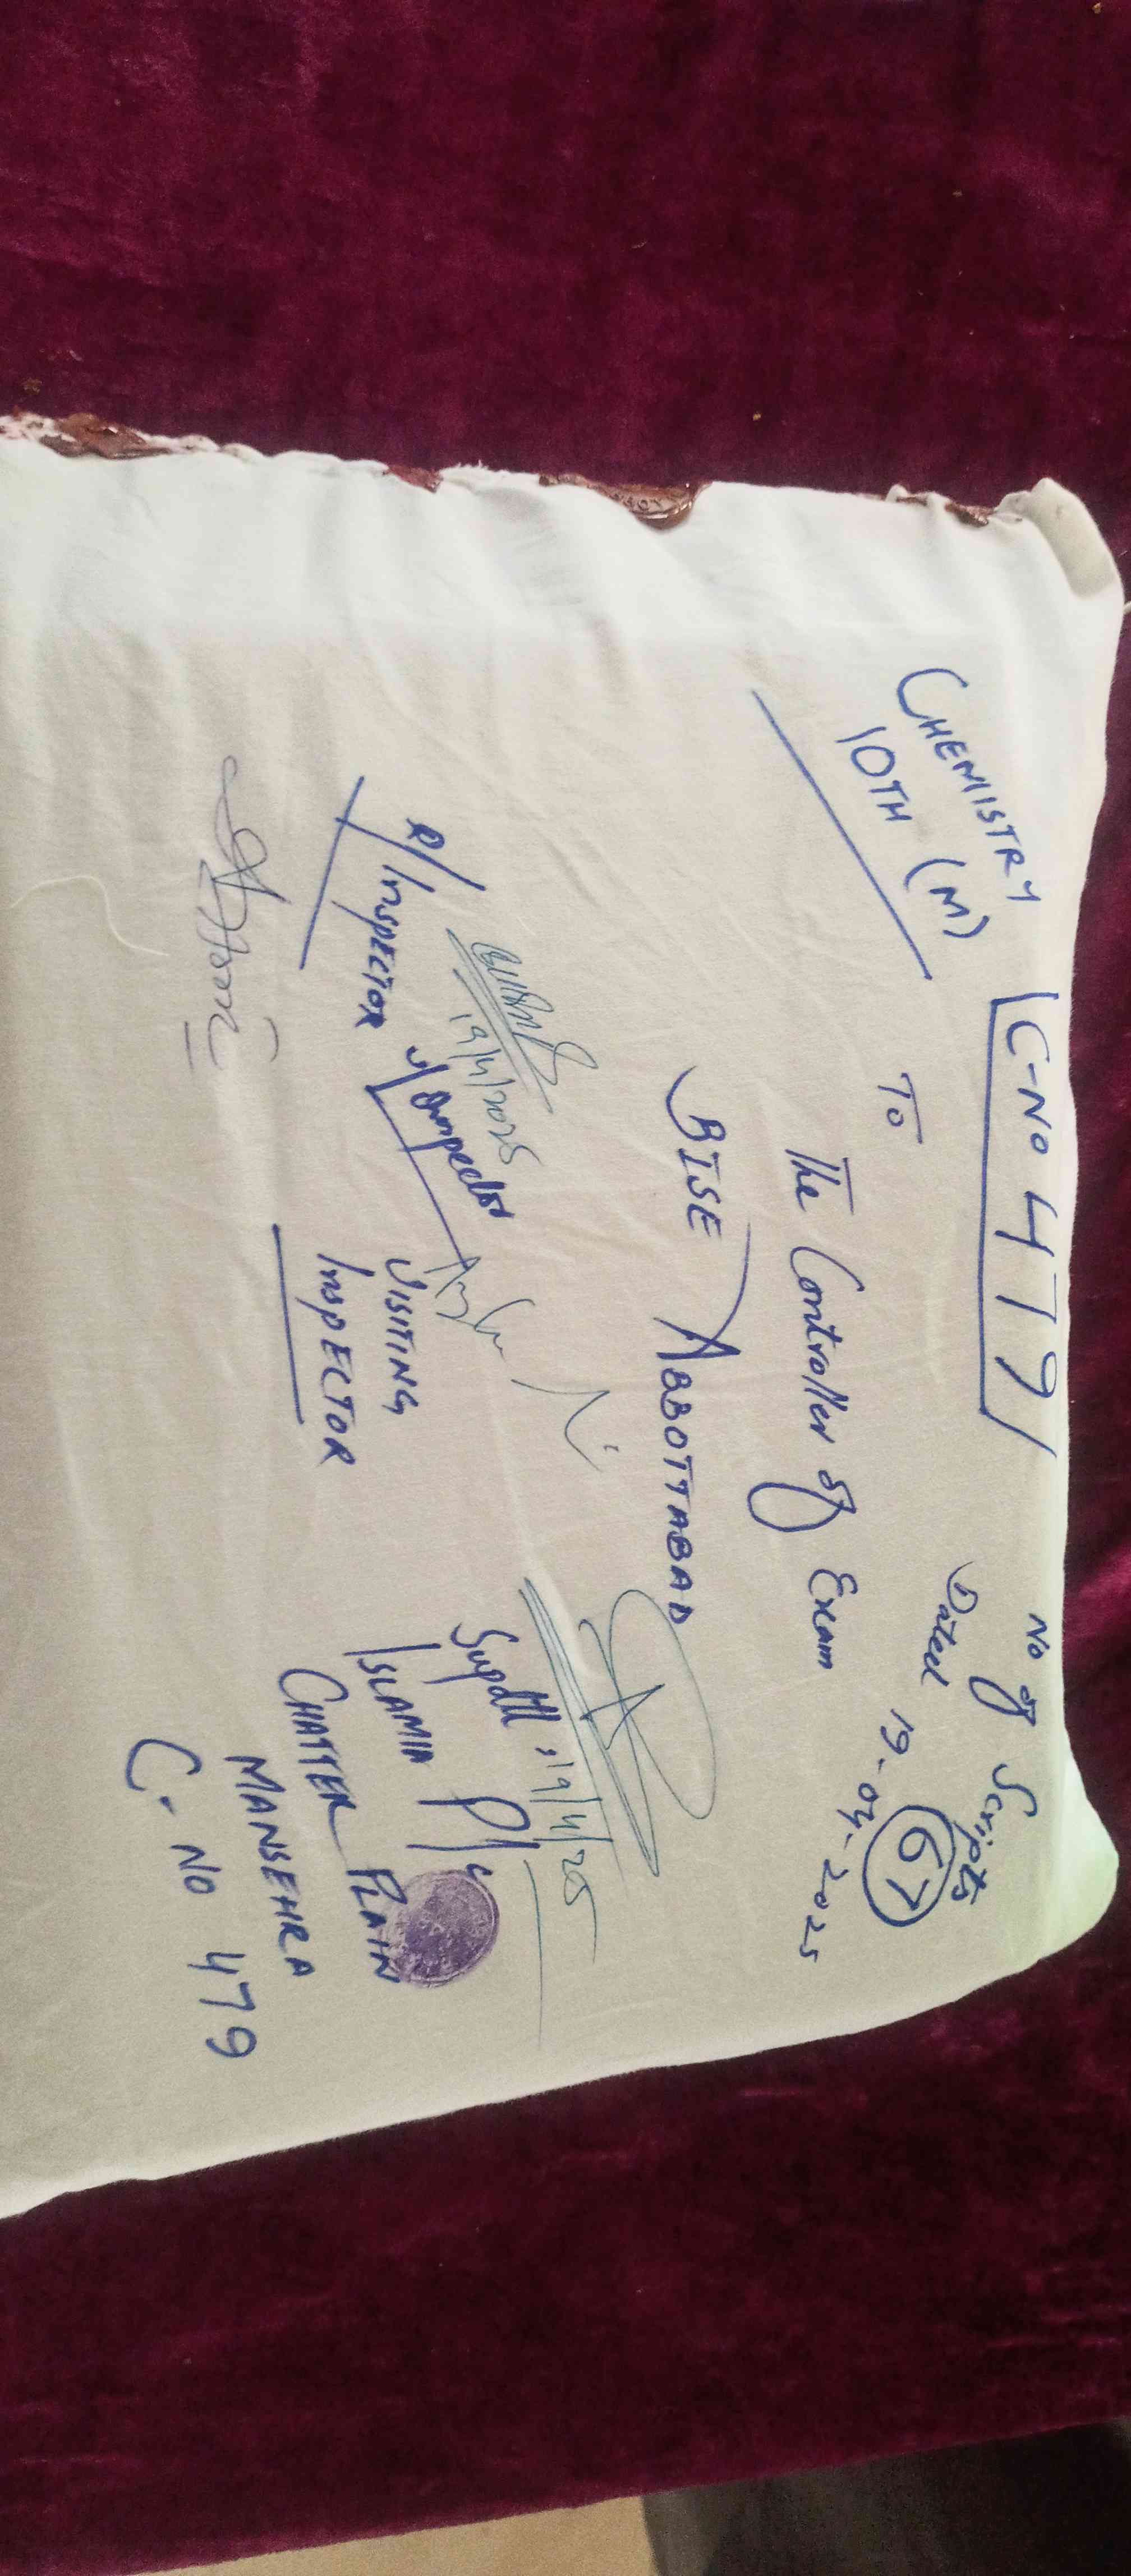 CHEMISTRY
10TH (M)
C-NO 479
No of Scripts
67
Dated 19-04-2025
To
The Controller of Exam
BISE ABBOTTABAD
19/4/2025
R/INSPECTOR
VISITING
INSPECTOR
19/4/25
Supdtt:
ISLAMIA P/S
CHATTER PLAIN
MANSEHRA
C-NO 479